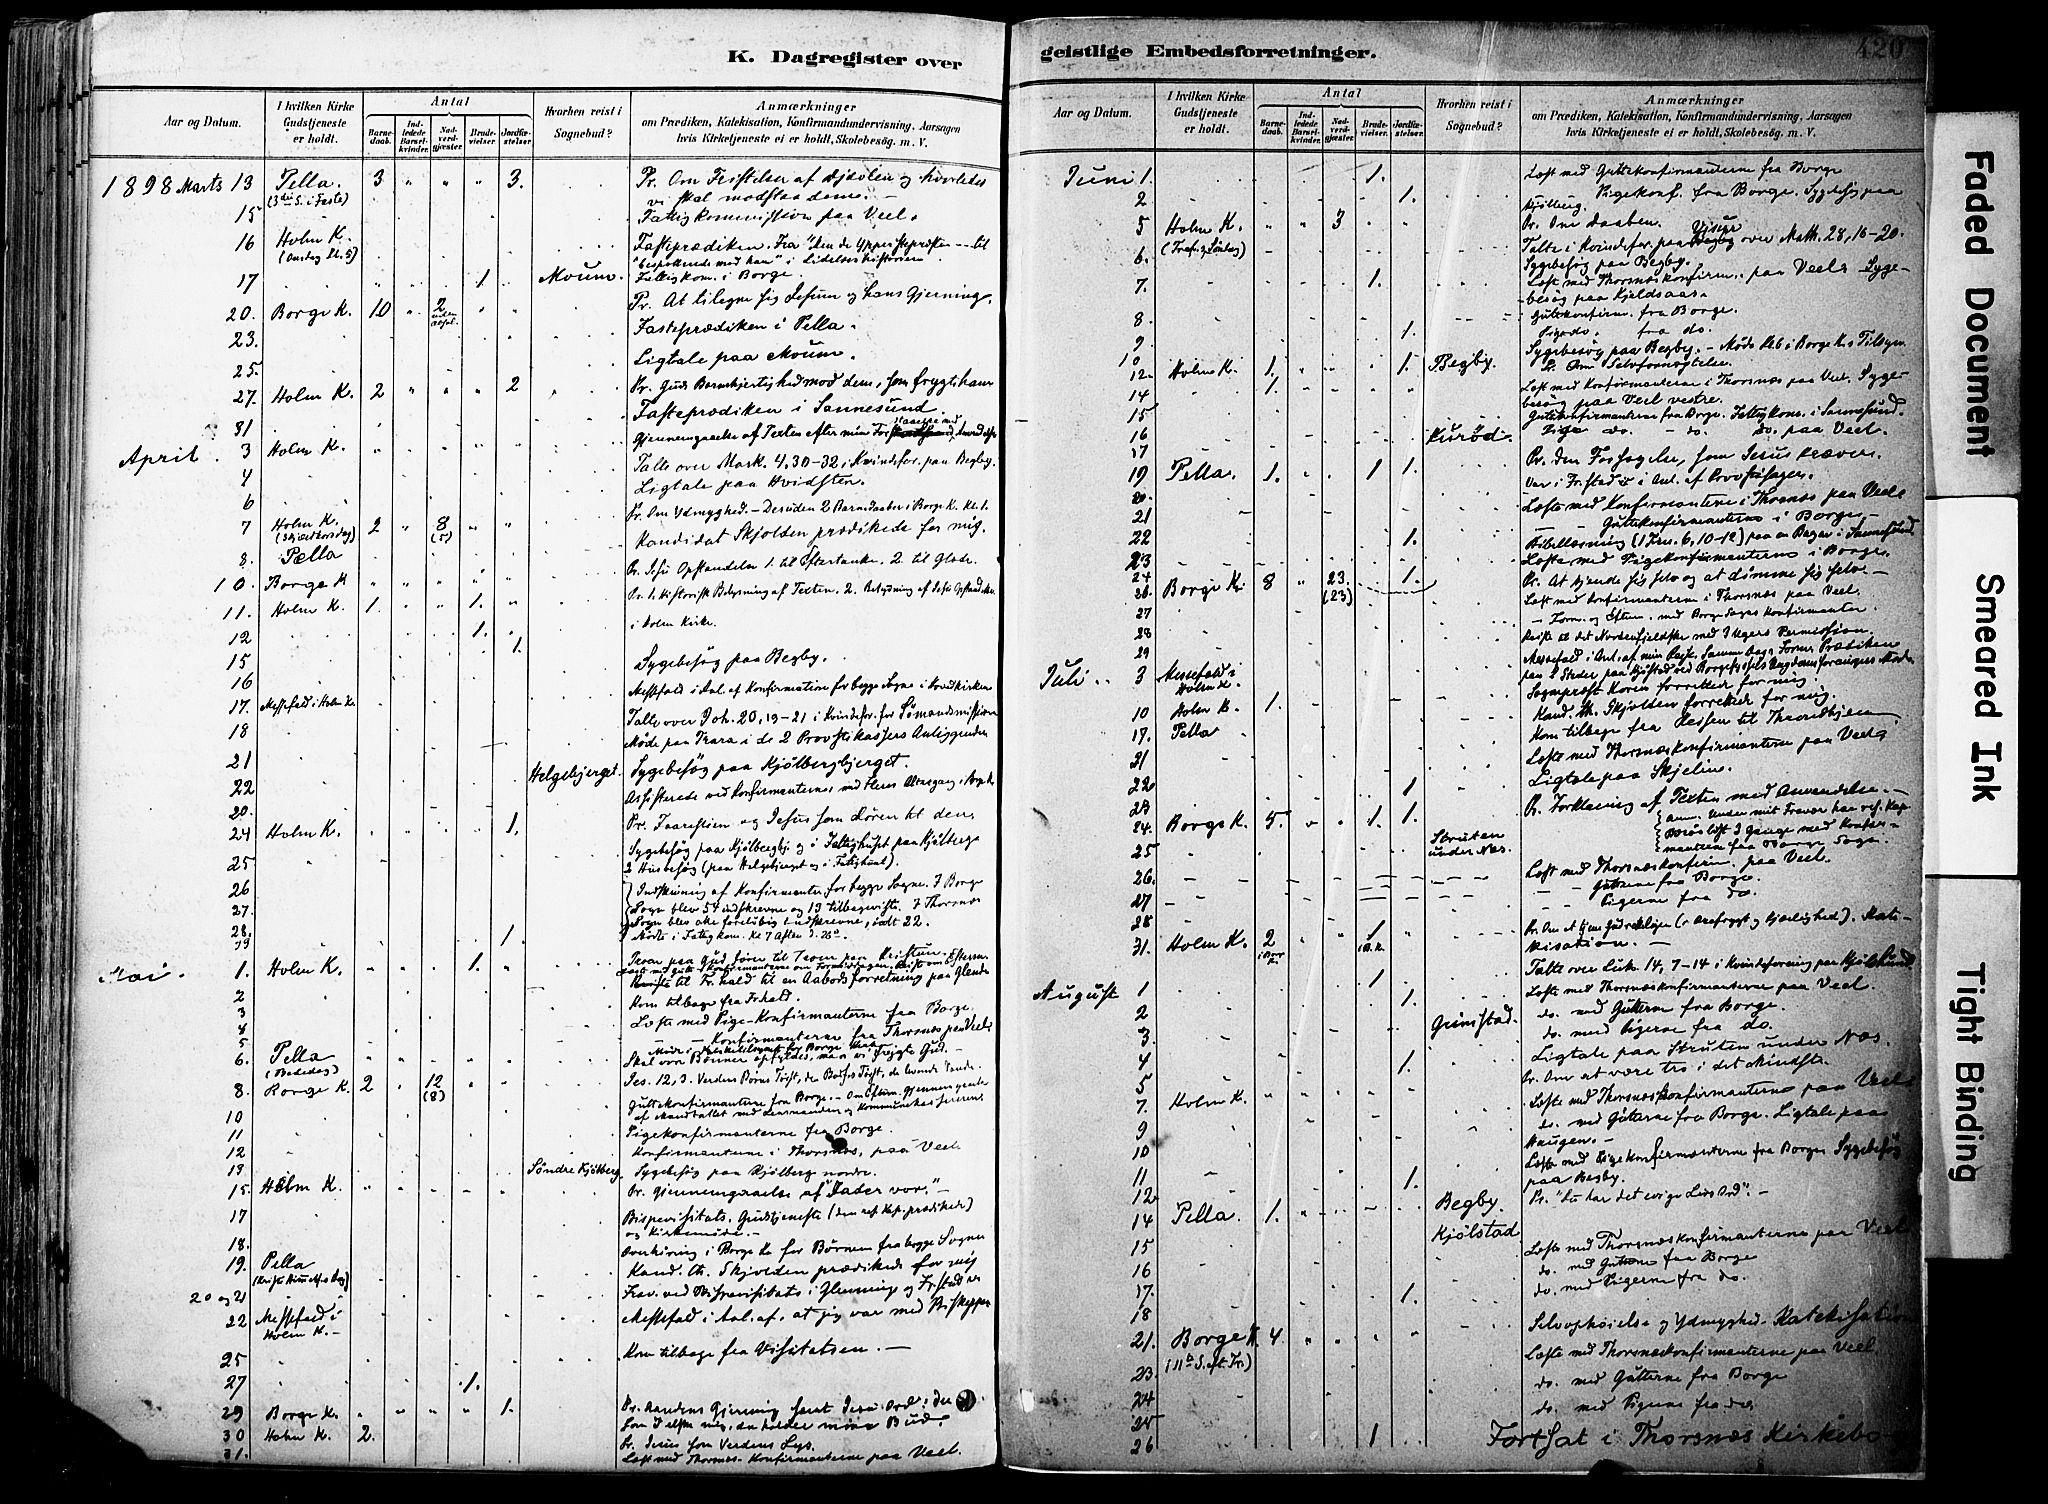 K. Dagregister over
Aar og Datum.
I hvilken Kirke Gudstjeneste er holdt.
Antal
Barnedaab.
Indledede Barselkvinder.
Nadverdgjæster.
Brudevielser.
Jordfæstelser.
Hvorhen reist i Sognebud?
Anmærkninger
om Prædiken, Katekisation, Konfirmandundervisning, Aarsagen
hvis Kirketjeneste ei er holdt, Skolebesøg. m. V.
1898 Marts 13 Pella. 3 " " " 3. Pr. Om Fristelser af Djævlen og hvorledes
(3die S. i Faste) vi skal modstaa dem. –
15 Fattigkommission paa Veel.
16 Holm K. Fasteprædiken. Fra "den de Ypperstepræster – til
(Onsdag Kl. 5) "bespottende mod ham" i Lidelseshistorien.
17 1 Moum. Fattigkom. i Borge.
20. Borge K. 10 " 2 " " Pr. At tilegne sig Jesum og hans Gjerning.
23. Fasteprædiken i Pella.
25. Ligtale paa Moum.
27. Holm K. 2 " " " 2 Pr. Guds Barmhjertighed mod dem, som frygte ham
31 Fasteprædiken i Sannesund.
April. 3 Holm K. Gjennemgaaelse af Texten efter min
4 Talte over Mark. 4,30-32 i Kvindefor. paa Begby.
6 Ligtale paa Hvidsten.
7 Holm K. 2 " 8 " " Pr. Om Ydmyghed. – Desuden 2 Barnedaaber i Borge K. Kl. 1.
(Skjærtorsdag) (5)
8. Pella Kandidat Skjolden prædikede for mig.
10. Borge K Pr. Jesu Opstandelse 1. til Eftertanke. 2. til Glæde.
11. Holm K. 1. " " 1. " Pr. 1. Historisk Belysning af Texten. 2. Betydning af Jesu Opstandelse.
12 1. i Holm Kirke.
15 1.
16 Sygebesøg paa Begby.
17. Messefald i Holm K. Messefald i Anl. af Konfirmation for begge Sogne i Hovedkirken
18 Talte over Joh. 20,19-21 i Kvindefor. for Sømandsmission
21 Møde paa Trara i de 2 Provstikassers Anliggender
22 Helgebjerget. Sygebesøg paa Kjølbergbjerget.
20. Assisterede ved Konfirmanternes med deres Altergang i
24 Holm K. 1. Pr. Faarestien og Jesus som Døren til den
25 Sygebesøg paa Kjølbergbj. og i Fattighuset paa Kjølberg
2 Husbesøg (paa Helgebjerget og i Fattighuset).
26 Indskrivning af Konfirmanter for begge Sogne. I Borge
27. Sogn blev 54 indskrevne og 13 tilbageviste. I Thorsnæs
28. Sogn blev alle foreløbig indskrevne, ialt 22.
29 1. Møde i Fattigkom. Kl 7 Aften d. 26de
Mai. 1. Holm K. " " " 1. " Troen paa Gud fører til Troen paa Kristum.
2 Reiste til Fr.hald til en Aabodsforretning paa Glende
3 Kom tilbage fra Frhald.
4 Læste med Pige-Konfirmanterne fra Borge.
5 – – Konfirmanterne fra Thorsnæs paa Veel.
6. Pella Skal vore Bønner opfyldes, maa vi frygte Gud. –
(Bededag)
8. Borge K. 2 " 12 " " Jes. 12, 3. Verdens Børns Trøst, den Bodfærdiges Trøst, de levende Vande.
(8)
10 Guttekonfirmanterne fra Borge. – Om Efterm. Gjennemgaaelse
af Mandtallet med Lensmanden og Kommunekassereren.
11 Pigekonfirmanterne fra Borge.
12 Konfirmanterne i Thorsnæs, paa Veel
13 Søndre Kjølberg. Sygebesøg paa Kjølberg nordre.
15. Holm K. Pr. Gjennemgaaelse af "Fader vor". –
17 Bispevisitats. Gudstjeneste (den res. Kap. prædiker)
og Kirkemøde. –
18. Overhøring i Borge K. for Børnene fra begge Sogne
19. Pella Kand. th. Skjolden prædikede for mig
(Kristi Himmelfartsdag)
20 og 21 Frav. ved Bispevisitats i Glemminge og Fr.stad
22 Messefald i Messefald i Anl. af, at jeg var med Biskoppen
Holm K. –
25 Kom tilbage fra Visitatsen. –
27 1.
29 Borge K. " " " " 1. Pr. Aandens Gjerning samt Jesu Ord: den
som elsker mig, han holder mine Bud
30 Holm K. 2. Pr. Jesus som Verdens Lys.
31. Læst med Thorsnæs-Konfirmanterne paa Veel.
geistlige Embedsforretninger.
420
Aar og Datum.
I hvilken Kirke Gudstjeneste er holdt.
Antal
Barnedaab.
Indledede Barselkvinder.
Nadverdgjæster.
Brudevielser.
Jordfæstelser.
Hvorhen reist i Sognebud?
Anmærkninger
om Prædiken, Katekisation, Konfirmandundervisning, Aarsagen
hvis Kirketjeneste ei er holdt, Skolebesøg. m. V.
Juni 1. 1. Læst med Guttekonfirmanterne fra Borge
2 1. – Pigekonf. fra Borge. Sygebesøg paa
Kjølberg.
5 Holm K. " " 3 Pr. Om Daaben.
(Tref. Søndag) Talte i Kvindefor. paa Begby over Math. 28, 16-20.
6. Sygebesøg paa Begby.
7. 1. Læst med Thorsnæskonfirm. paa Veel. Sygebesøg
paa Kjeldsaas.
8. Guttekonfirm. fra Borge.
9 1. Pige do. fra do.
10 Sygebesøg paa Begby. – Møde Kl. 6 i Borge K.s Tilsyn.
12. Holm K. 1. 1. Begby. Pr. Om Selvfornegtelse.
14 1. Læst med Konfirmanterne i Thorsnæs paa Veel. Sygebesøg
paa Veel vestre.
15 Guttekonfirmanterne fra Borge. Fattigkom. i Sannesund.
16 Kurød. Pige do. – do. do. paa Veel.
17
19 Pella. 1. 1 1. Pr. Den Forsagelse, som Jesus kræver.
20. Var i Fr.stad i Anl. af Provstesager.
21 Læste med Konfirmanterne i Thorsnæs paa Veel
22 1. – – Guttekonfirmanterne i Borge –
23 Bibellæsning (1 Tim. 6, 10-12) paa en Bazar i Sannesund
24 1. Læste med Pigekonfirmanterne i Borge.
26. Borge K. 8 " 23. Pr. At kjende sig selv og at dømme sig selv. –
(23)
27 Læst med Konfirmanterne i Thorsnæs paa Veel.
28 – Form. og Efterm. med Borge Sogns Konfirmanter.
29 Reiste til det Nordenfjeldske med 3 Ugers Permission
Juli 3 Messefald i Messefald i Anl. af min Reise. Samme Dags Formd. Prædiken
Holm K.
10 Holm K. 1. Sogneprest Koren forretter for mig.
17. Pella Kand. th. Skjolden forretter for mig.
21 Kom tilbage fra Reisen til Throndhjem
22 1 Læste med Thorsnæskonfirmanterne paa Veel
23 Ligtale paa Skjelin.
24. Borge K. 5. " " 1. 1. Pr. Forklaring af Texten med Anvendelse. –
25 Struten under Næs. Anm. Under mit Fravær har res. Kap.
læst 3 Gange med Konfirmanterne
fra Borge Sogn.
26. Læst med Thorsnæskonfirm. paa Veel.
27 – – Gutterne fra Borge.
28 – – Pigerne fra do.
31. Holm K. 2 " " 1 " Pr. Om at tjene Gud rettelig (i ærefrygt og kjærlighed). Katekisation.
–
August 1 1 Talte over Luk. 14, 7-14 i Kvindeforening paa Kjølslund.
2 1. Læste med Thorsnæskonfirmanterne paa Veel.
3. Grimstad. do. med Gutterne fra Borge.
4 1. do. med Pigerne fra do.
5 Ligtale paa Struten under Næs.
7. Holm K. Pr. Om at være tro i det Mindste.
9 Læste med Thorsnæskonfirmanterne paa Veel.
10 do. med Gutterne fra Borge. Ligtale paa
Haugen. –
11 1. Læste med Pigekonfirmanterne fra Borge. Sygebesøg
paa Begby.
12 Begby.
14 Pella. 1. Kjølstad Pr. "du har det evige Livs Ord". –
15 Læste med Thorsnæskonfirmanterne paa Veel
16 do. med Gutterne fra Borge
17. 1. do. med Pigerne fra do.
18
21. Borge K. 4 Selvophøielse og Ydmyghed. Katekisation
(i 11te S. eft. Tr.)
23. Læste med Thorsnæskonfirmanterne paa Veel.
24 do. med Gutterne fra Borge
25 do. med Pigerne fra do.
26 1 Fortsat i Thorsnæs Kirkebog
Faded Document
Smeared Ink
Tight Binding